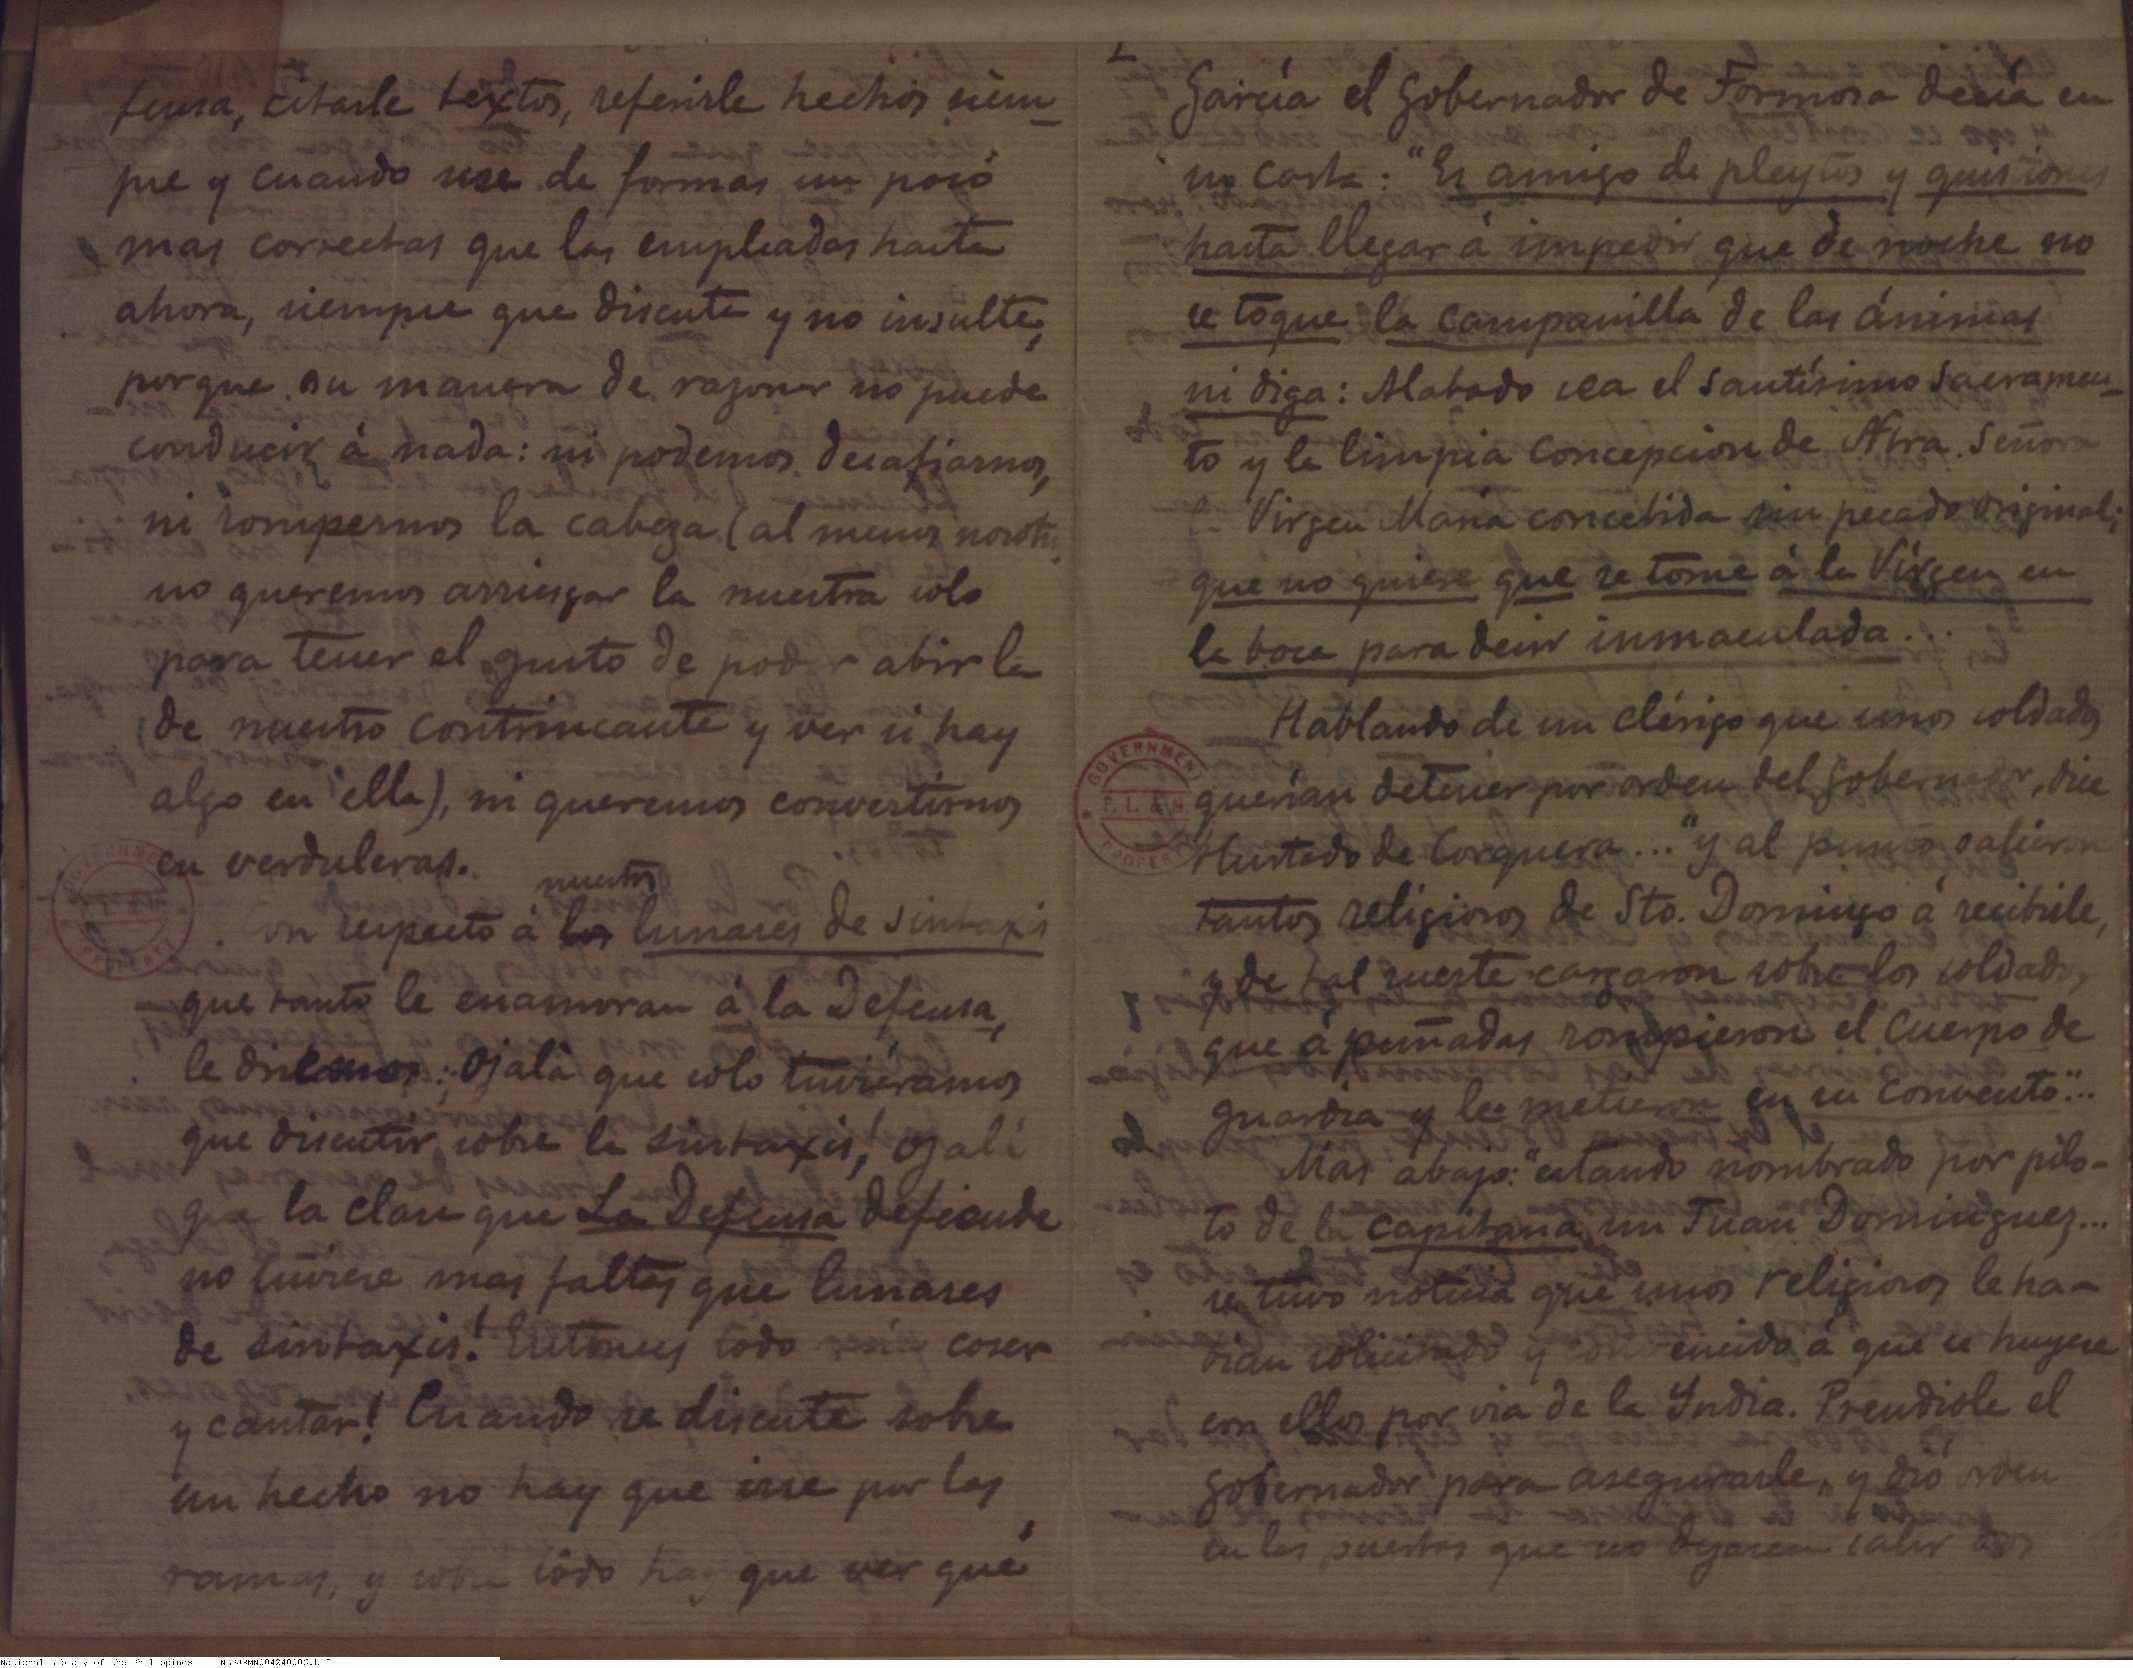 fensa, citarle textos, referirle hechos siem-
pre y cuando use de formas un poco
mas correctas que las empleadas hasta
ahora, siempre que discuta y no insulte,
porque su manera de razonar no puede
conducir á nada: ni podemos desafiarnos,
ni rompernos la cabeza (al menos nosotros
no queremos arriesgar la nuestra solo
para tener el gusto de poder abrir la
de nuestro contrincante y ver si hay
algo en ella), ni queremos convertirnos
en verduleras.
nuestros
Con respecto á los lunares de sintaxis
que tanto le enamoran á la Defensa,
le diremos: ¡Ojalá que solo tuviéramos
que discutir sobre la sintaxis! Ojalá
que la clase que La Defensa defiende
no tuviese mas faltas que lunares
de sintaxis! Entonces todo coser
y cantar! Cuando se discute sobre
un hecho no hay que irse por las
ramas, y sobre todo hay que ver qué
García el Gobernador de Formosa decía en
su carta: "Es amigo de pleytos y quistiones
hasta llegar á impedir que de noche no
se toque la campanilla de las ánimas
ni diga: Alabado sea el Santísimo Sacramen-
to y la limpia Concepcion de Ntra. Señora
Virgen Maria concebida sin pecado original;
que no quiere que se tome á la Vírgen en
la boca para decir inmaculada...
Hablando de un clérigo que unos soldados
querían detener por orden del Gobernador, dice
Hurtado de Corquera... "y al punto salieron
tantos religiosos de Sto. Domingo á recibirle,
y de tal suerte cargaron sobre los soldados
que á puñadas rompieron el Cuerpo de
guardia y le metieron en su Convento"...
Mas abajo: "estando nombrado por pilo-
to de la capitana un Juan Dominguez...
se tuvo noticia que unos religiosos le ha-
bian solicitado y convencido á que se huyese
con ellos por via de la Yndia. Prendiole el
Gobernador para asegurarle, y dió orden
en las puertas que no dejasen salir los
GOVERNMENT
P. L. & M.
PROPERTY